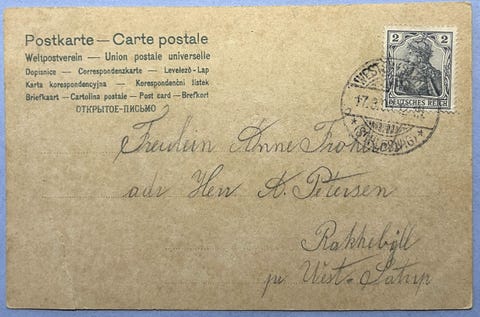 Postkarte — Carte postale
Weltpostverein — Union postale universelle
Dopisnice — Correspondenzkarte — Levelező-Lap
Karta korespondencyjna — Korespondenční lístek
Briefkaart — Cartolina postale — Post card — Brefkort
ОТКРЫТОЕ ПИСЬМО
2 2
DEUTSCHES REICH
WEST
17.3.
(SCHLESWIG)
Freulein Anne
adr Herr A. Petersen
Rakkebÿll
pr West-Satrup